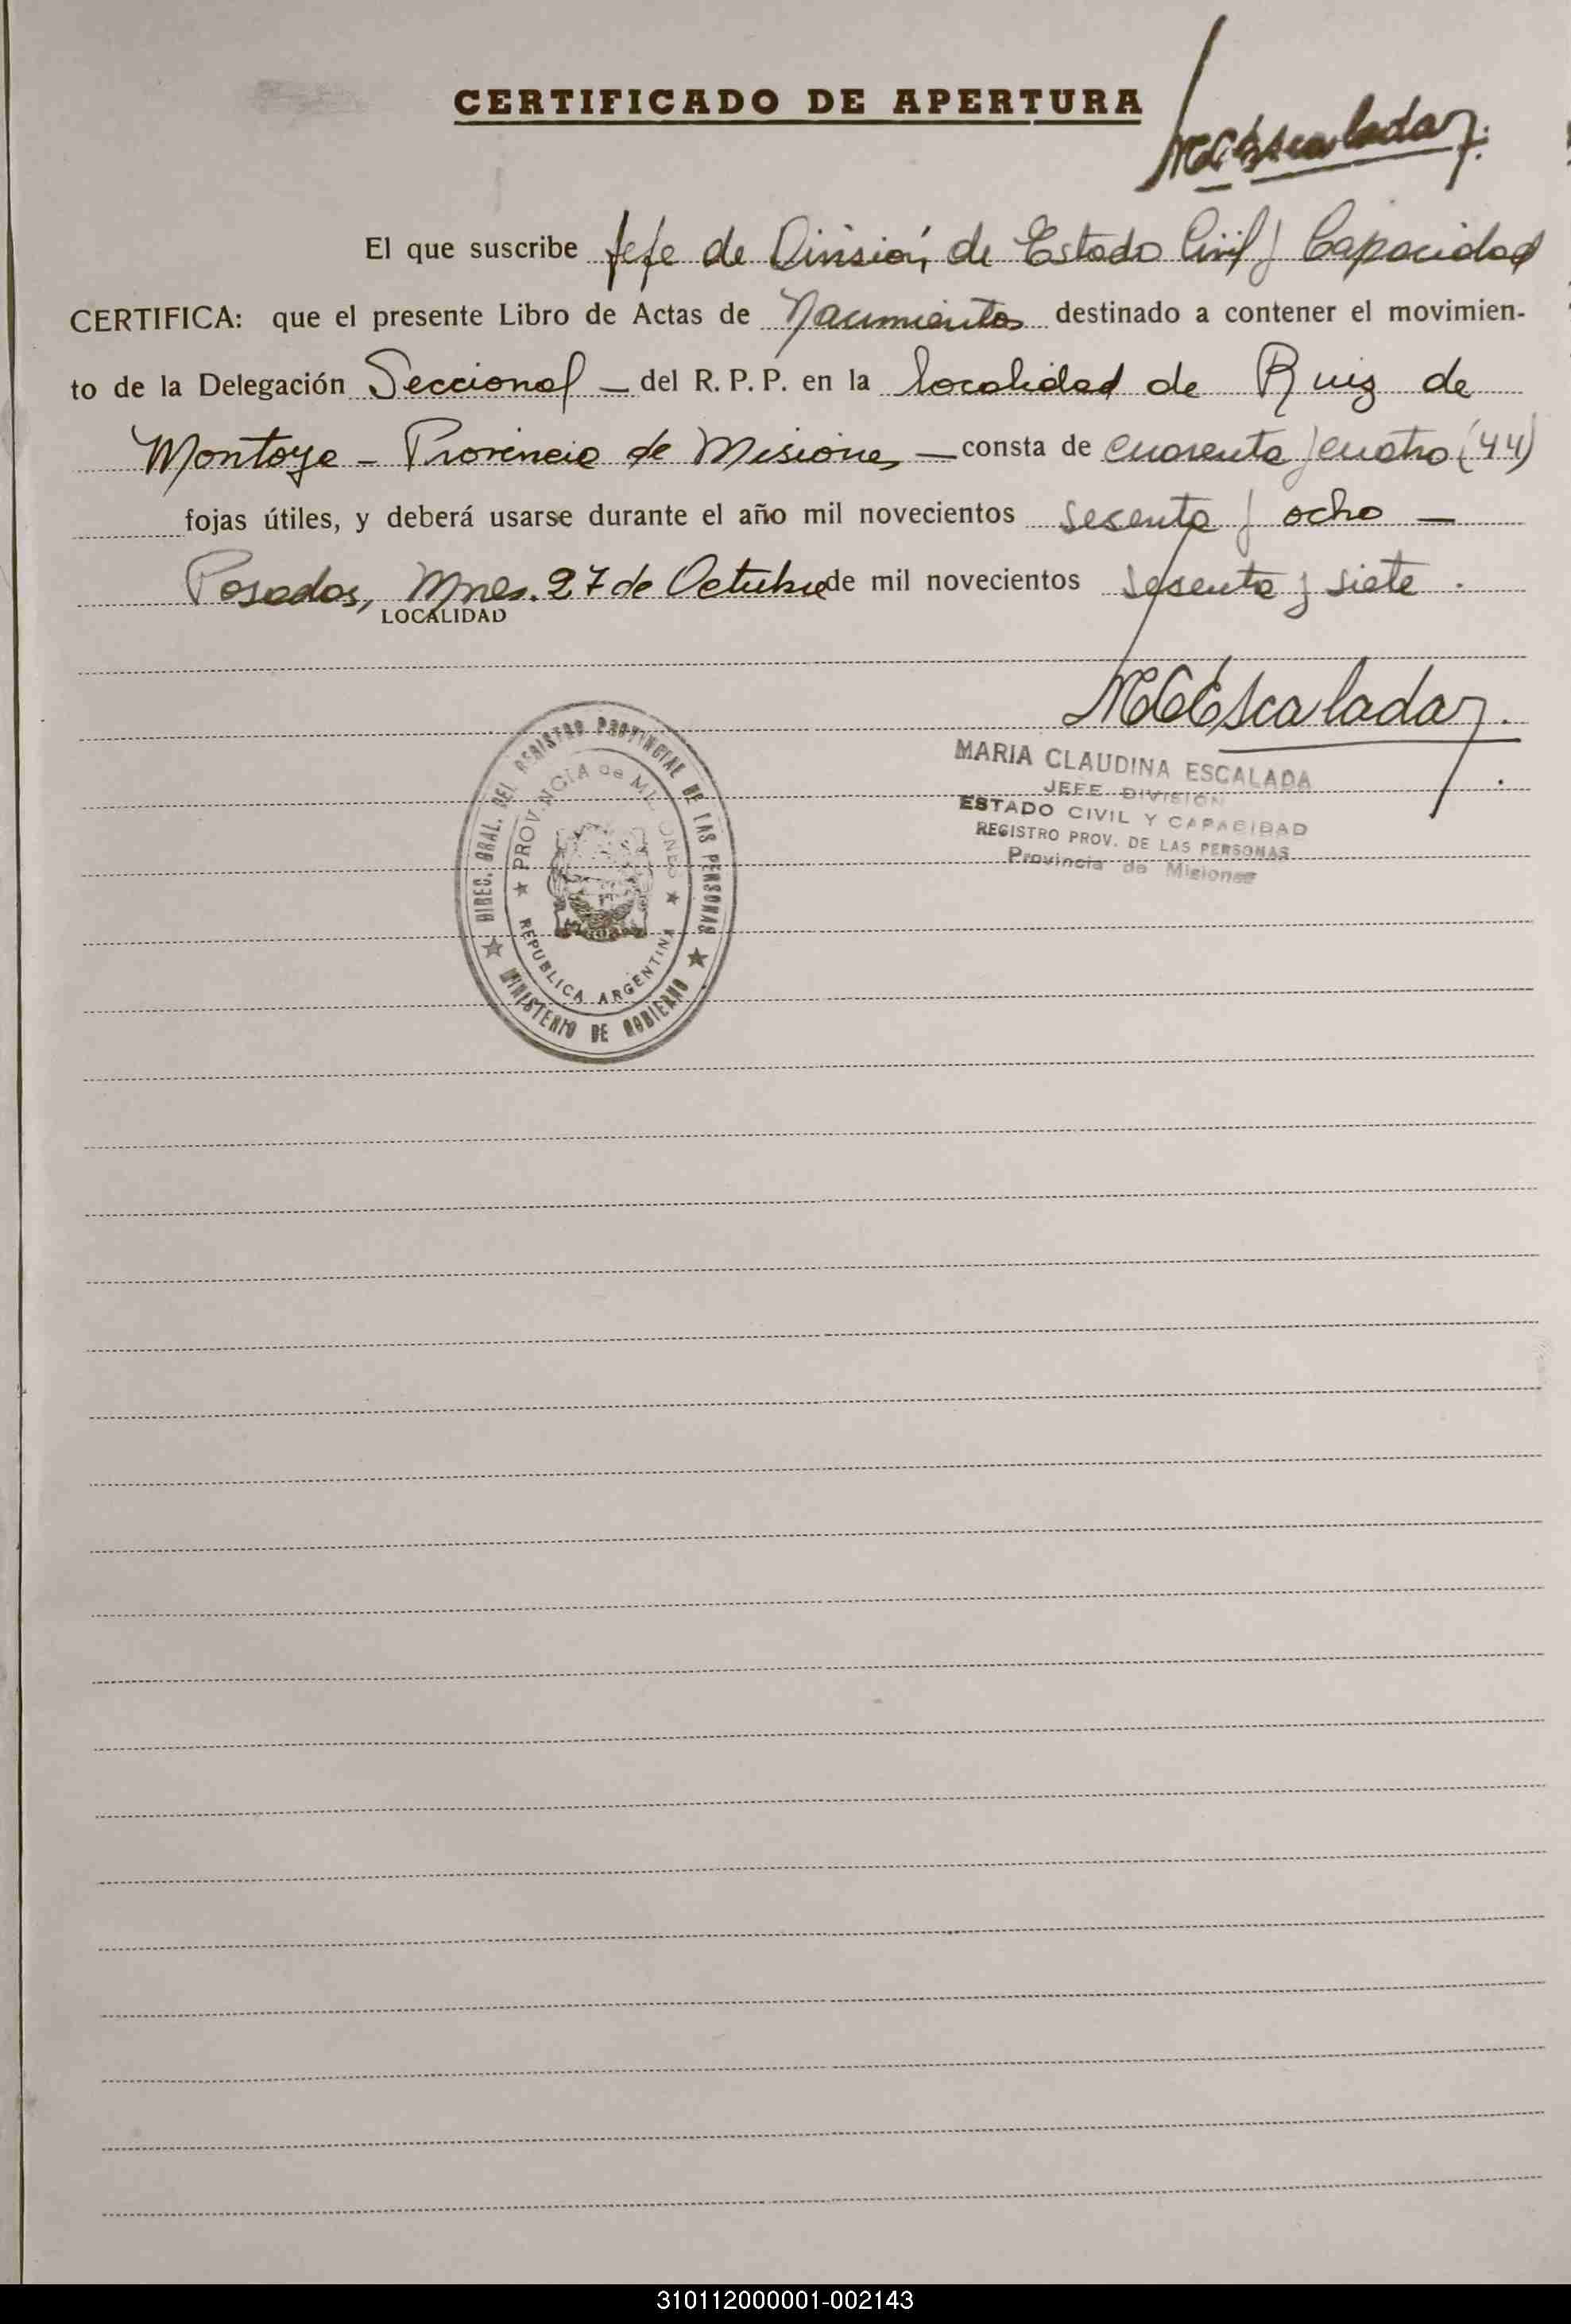 CERTIFICADO DE APERTURA
MCEscalada
El que suscribe Jefe de División de Estado Civil y Capacidad
CERTIFICA: que el presente Libro de Actas de Nacimientos destinado a contener el movimien-
to de la Delegación Seccional — del R. P. P. en la localidad de Ruiz de
Montoya - Provincia de Misiones — consta de cuarenta y cuatro (44)
fojas útiles, y deberá usarse durante el año mil novecientos sesenta y ocho —
Posadas, Mnes. 27 de Octubre de mil novecientos sesenta y siete .
LOCALIDAD
MCEscalada
MARIA CLAUDINA ESCALADA
JEFE DIVISION
ESTADO CIVIL Y CAPACIDAD
REGISTRO PROV. DE LAS PERSONAS
Provincia de Misiones
DIREC. GRAL. DEL REGISTRO PROVINCIAL DE LAS PERSONAS
PROVINCIA de MISIONES
REPUBLICA ARGENTINA
MINISTERIO DE GOBIERNO
310112000001-002143